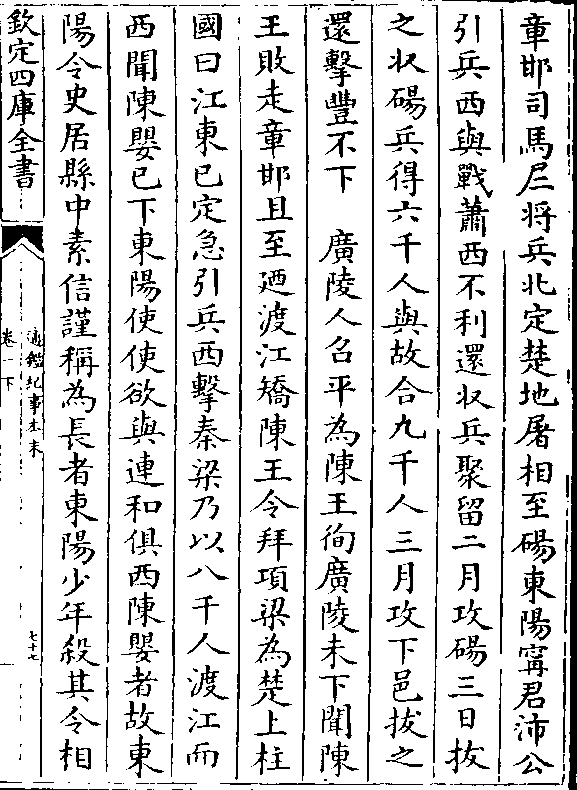 章邯司馬𡰥将兵北定楚地屠相至碭東陽甯君沛公
引兵西與戰蕭西不利還収兵聚留二月攻碭三日拔
之収碭兵得六千人與故合九千人三月攻下邑拔之
還擊豐不下　廣陵人召平為陳王徇廣陵未下聞陳
王敗走章邯且至廼渡江矯陳王令拜項梁為楚上柱
國曰江東已定急引兵西擊秦梁乃以八千人渡江而
西聞陳嬰已下東陽使使欲與連和俱西陳嬰者故東
陽令史居縣中素信謹稱為長者東陽少年殺其令相
欽定四庫全書
通鑑紀事本末
卷一下
七十七